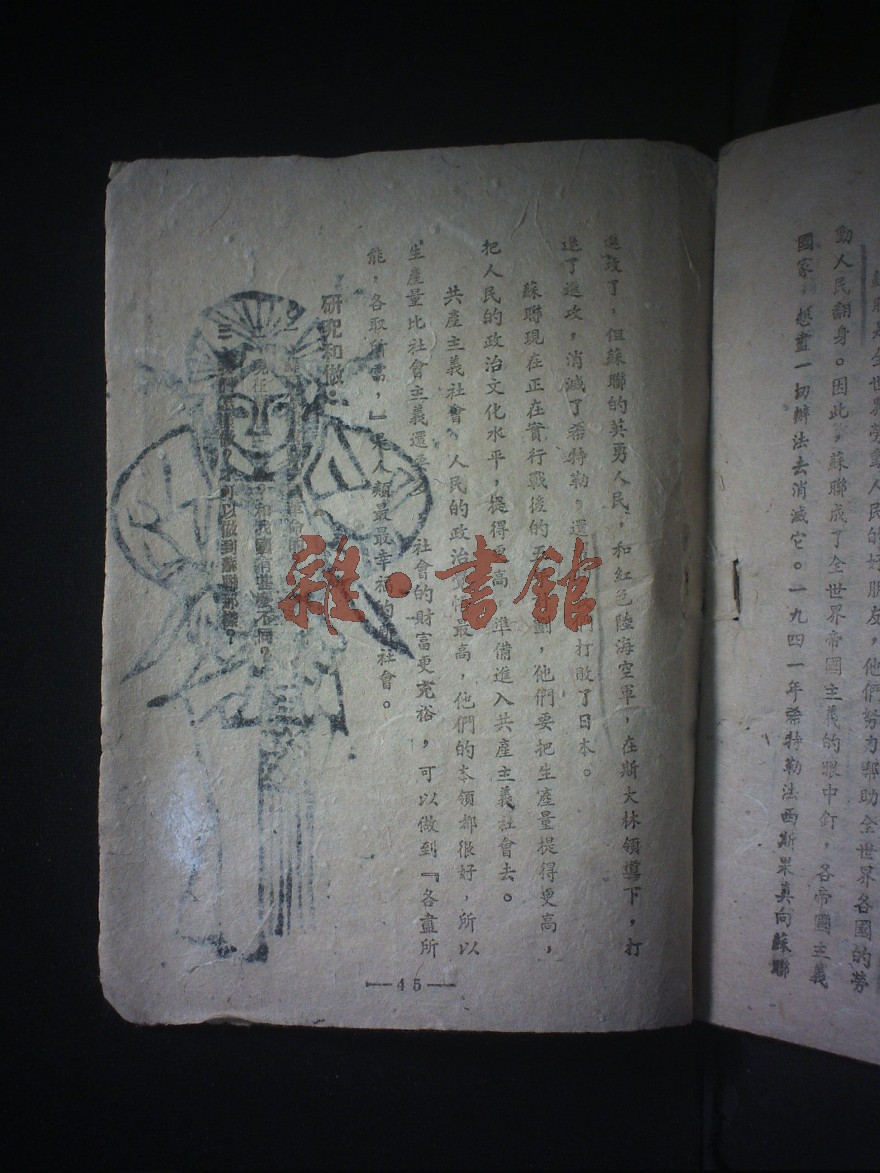 蘇聯是全世界勞動人民的好朋友，他們努力幫助全世界各國的勞
動人民翻身。因此，蘇聯成了全世界帝國主義的眼中釘，各帝國主義
國家 想盡一切辦法去消滅它。一九四一年希特勒法西斯果真向蘇聯
進攻了，但蘇聯的英勇人民，和紅色陸海空軍，在斯大林領導下，打
退了進攻，消滅了希特勒，還 們打敗了日本。
蘇聯現在正在實行戰後的五 劃，他們要把生產量提得更高，
把人民的政治文化水平，提得更高 準備進入共產主義社會去。
共產主義社會，人民的政治 最高，他們的本領都很好，所以
生產量比社會主義還要 社會的財富更充裕，可以做到『各盡所
能，各取所需，』是人類最最幸福的 社會。
研究和做：
二 現在 和我國有些麼不同？
三 可以做到蘇聯那樣？
—45—
雜·書館